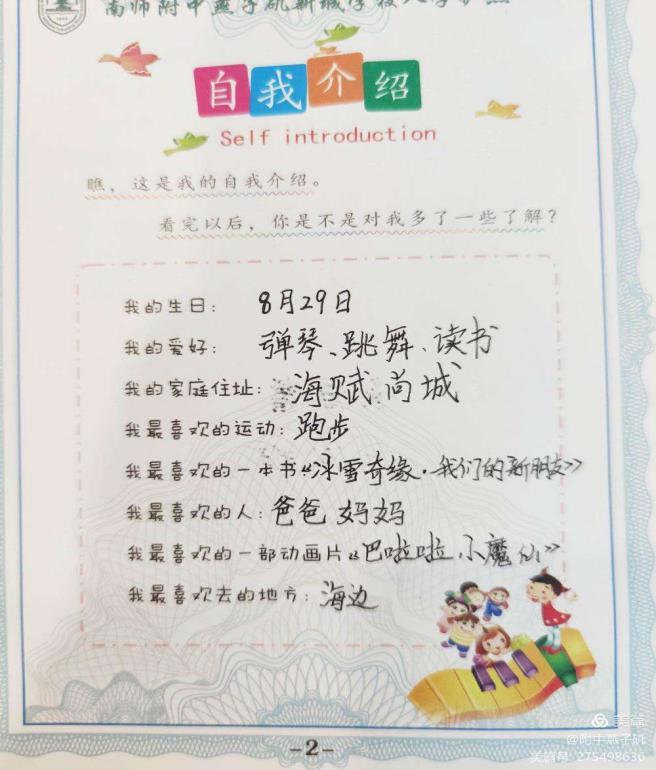 南师附中燕子矶新城学校入学护照
自我介绍
Self introduction
瞧，这是我的自我介绍。
看完以后，你是不是对我多了一些了解？
我的生日： 8月29日
我的爱好： 弹琴、跳舞、读书
我的家庭住址： 海赋尚城
我最喜欢的运动：跑步
我最喜欢的一本书《冰雪奇缘·我们的新朋友》
我最喜欢的人：爸爸妈妈
我最喜欢的一部动画片《巴啦啦小魔仙》
我最喜欢去的地方：海边
-2-
美篇
@附中燕子矶
美篇号 275498636